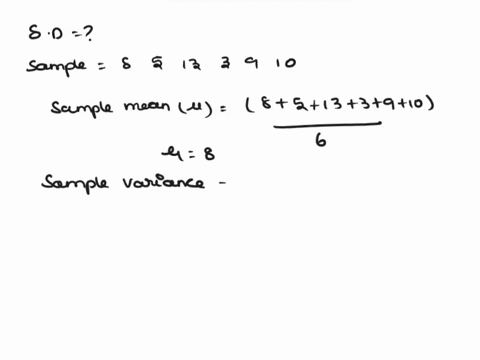 S.D = ?
Sample = 8 5 13 3 9 10
Sample mean (μ) = (8+5+13+3+9+10)
6
μ = 8
Sample variance -